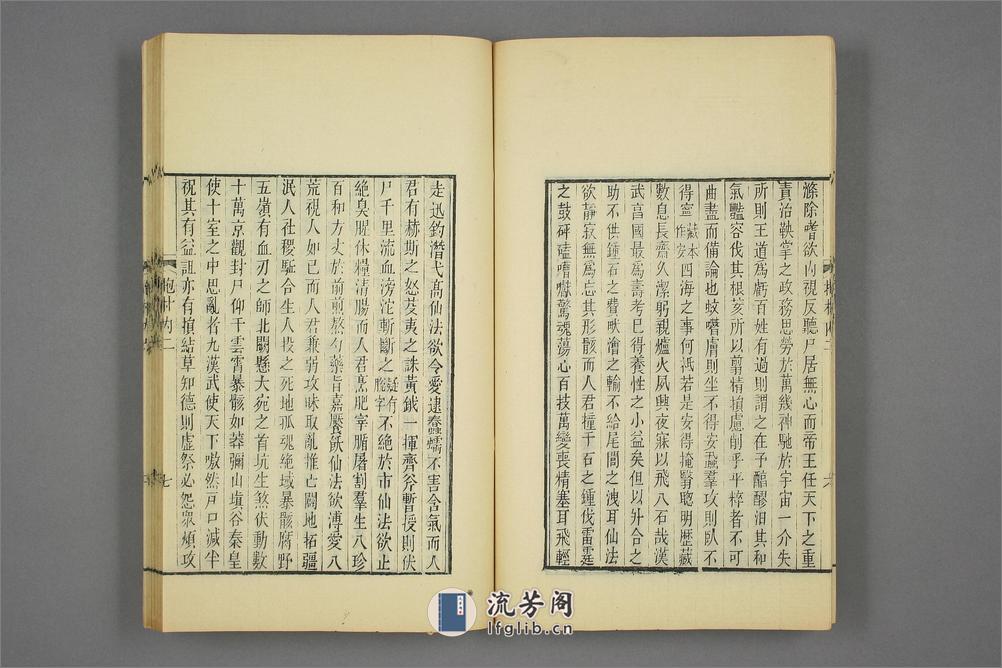 滌除嗜欲內視反聽尸居無心而帝王任天下之重
責治鞅掌之政務思勞於萬幾神馳於宇宙一介失
所則王道爲虧百姓有過則謂之在予醞醪汨其和
氣豔容伐其根荄所以翦精損慮削乎平粹者不可
曲盡而備論也蚊噆膚則坐不得安蝨羣攻則臥不
得寧藏本作安四海之事何祗若是安得掩翳聰明歷藏
數息長齋久潔躬親爐火夙興夜寐以飛八石哉漢
武享國最爲壽考巳得養性之小益矣但以升合之
助不供鍾石之費畎澮之輸不給尾閭之洩耳仙法
欲靜寂無爲忘其形骸而人君撞千石之鍾伐雷霆
之鼓砰磕嘈囐驚魂蕩心百技萬變喪情塞耳飛輕
走迅釣潛弋高仙法欲令愛逮蠢蠕不害含氣而人
君有赫斯之怒芟夷之誅黃鉞一揮齊斧暫授則伏
尸千里流血滂沱斬斷之疑有脫字不絶於市仙法欲止
絶臭腥休糧清腸而人君烹肥宰腯屠割羣生八珍
百和方丈於前煎熬勺藥旨嘉饜飫仙法欲溥愛八
荒視人如己而人君兼弱攻昧取亂推亡闢地拓疆
泯人社稷駈合生人投之死地孤魂絶域暴骸腐野
五嶺有血刃之師北闕懸大宛之首坑生煞伏動數
十萬京觀封尸仰干雲霄暴骸如莽彌山塡谷秦皇
使十室之中思亂者九漢武使天下嗷然戸口減半
祝其有益詛亦有損結草知德則虛祭必怨衆煩攻
抱朴內二
七